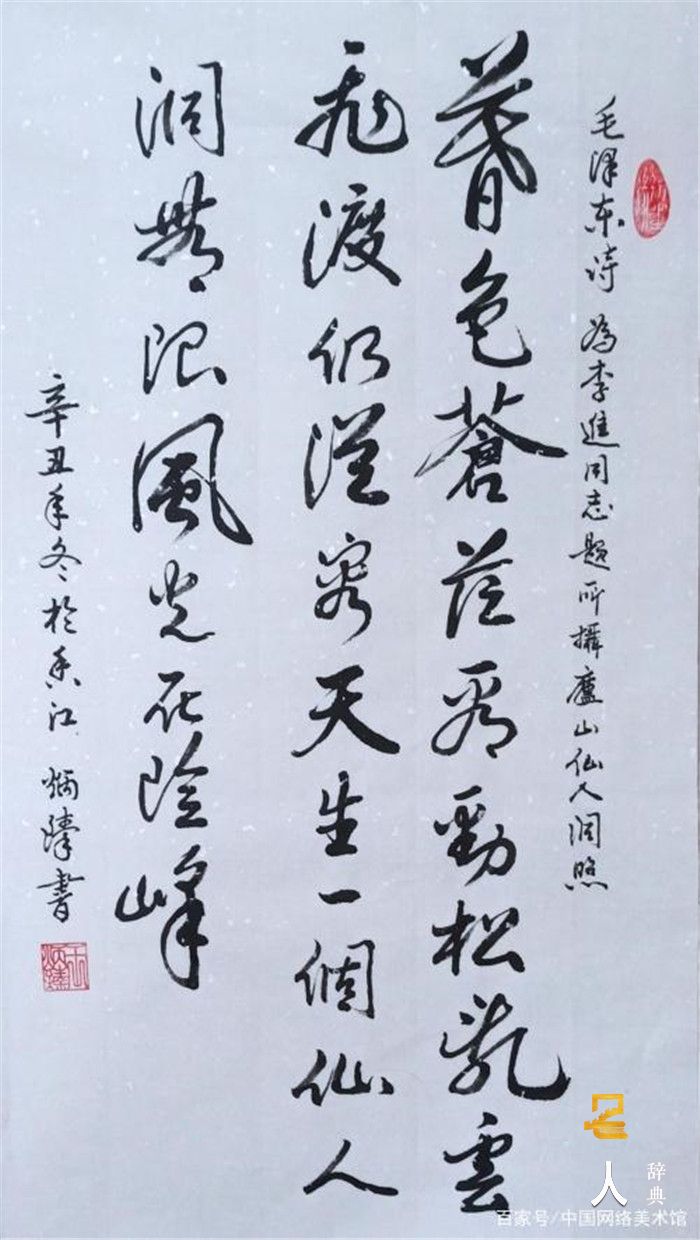 毛泽东诗 為李進同志题所攝廬山仙人洞照
暮色蒼茫看勁松乱雲
飛渡仍從容天生一個仙人
洞無限風光在險峰
辛丑年冬於香江 炳濤書
名人
辞典
百家号/中国网络美术馆